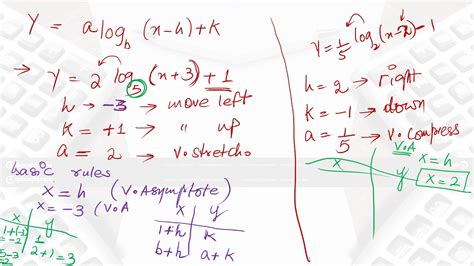 Y = a log_b (x-h) + k
→ Y = 2 log_5 (x+3) + 1
h → -3 → move left
k = +1 → " up
a = 2 → v.stretch
basic rules
x = h (V.Asymptote)
x = -3 (V.A
x | y
1+h | k
b+h | a+k
x | y
1+(-3) = -2 | 1
5-3 = 2 | 2+1 = 3
Y = 1/5 log_2 (x-2) - 1
h = 2 → right
k = -1 → down
a = 1/5 → v.compress
V.A
x | y
x = h
x = 2